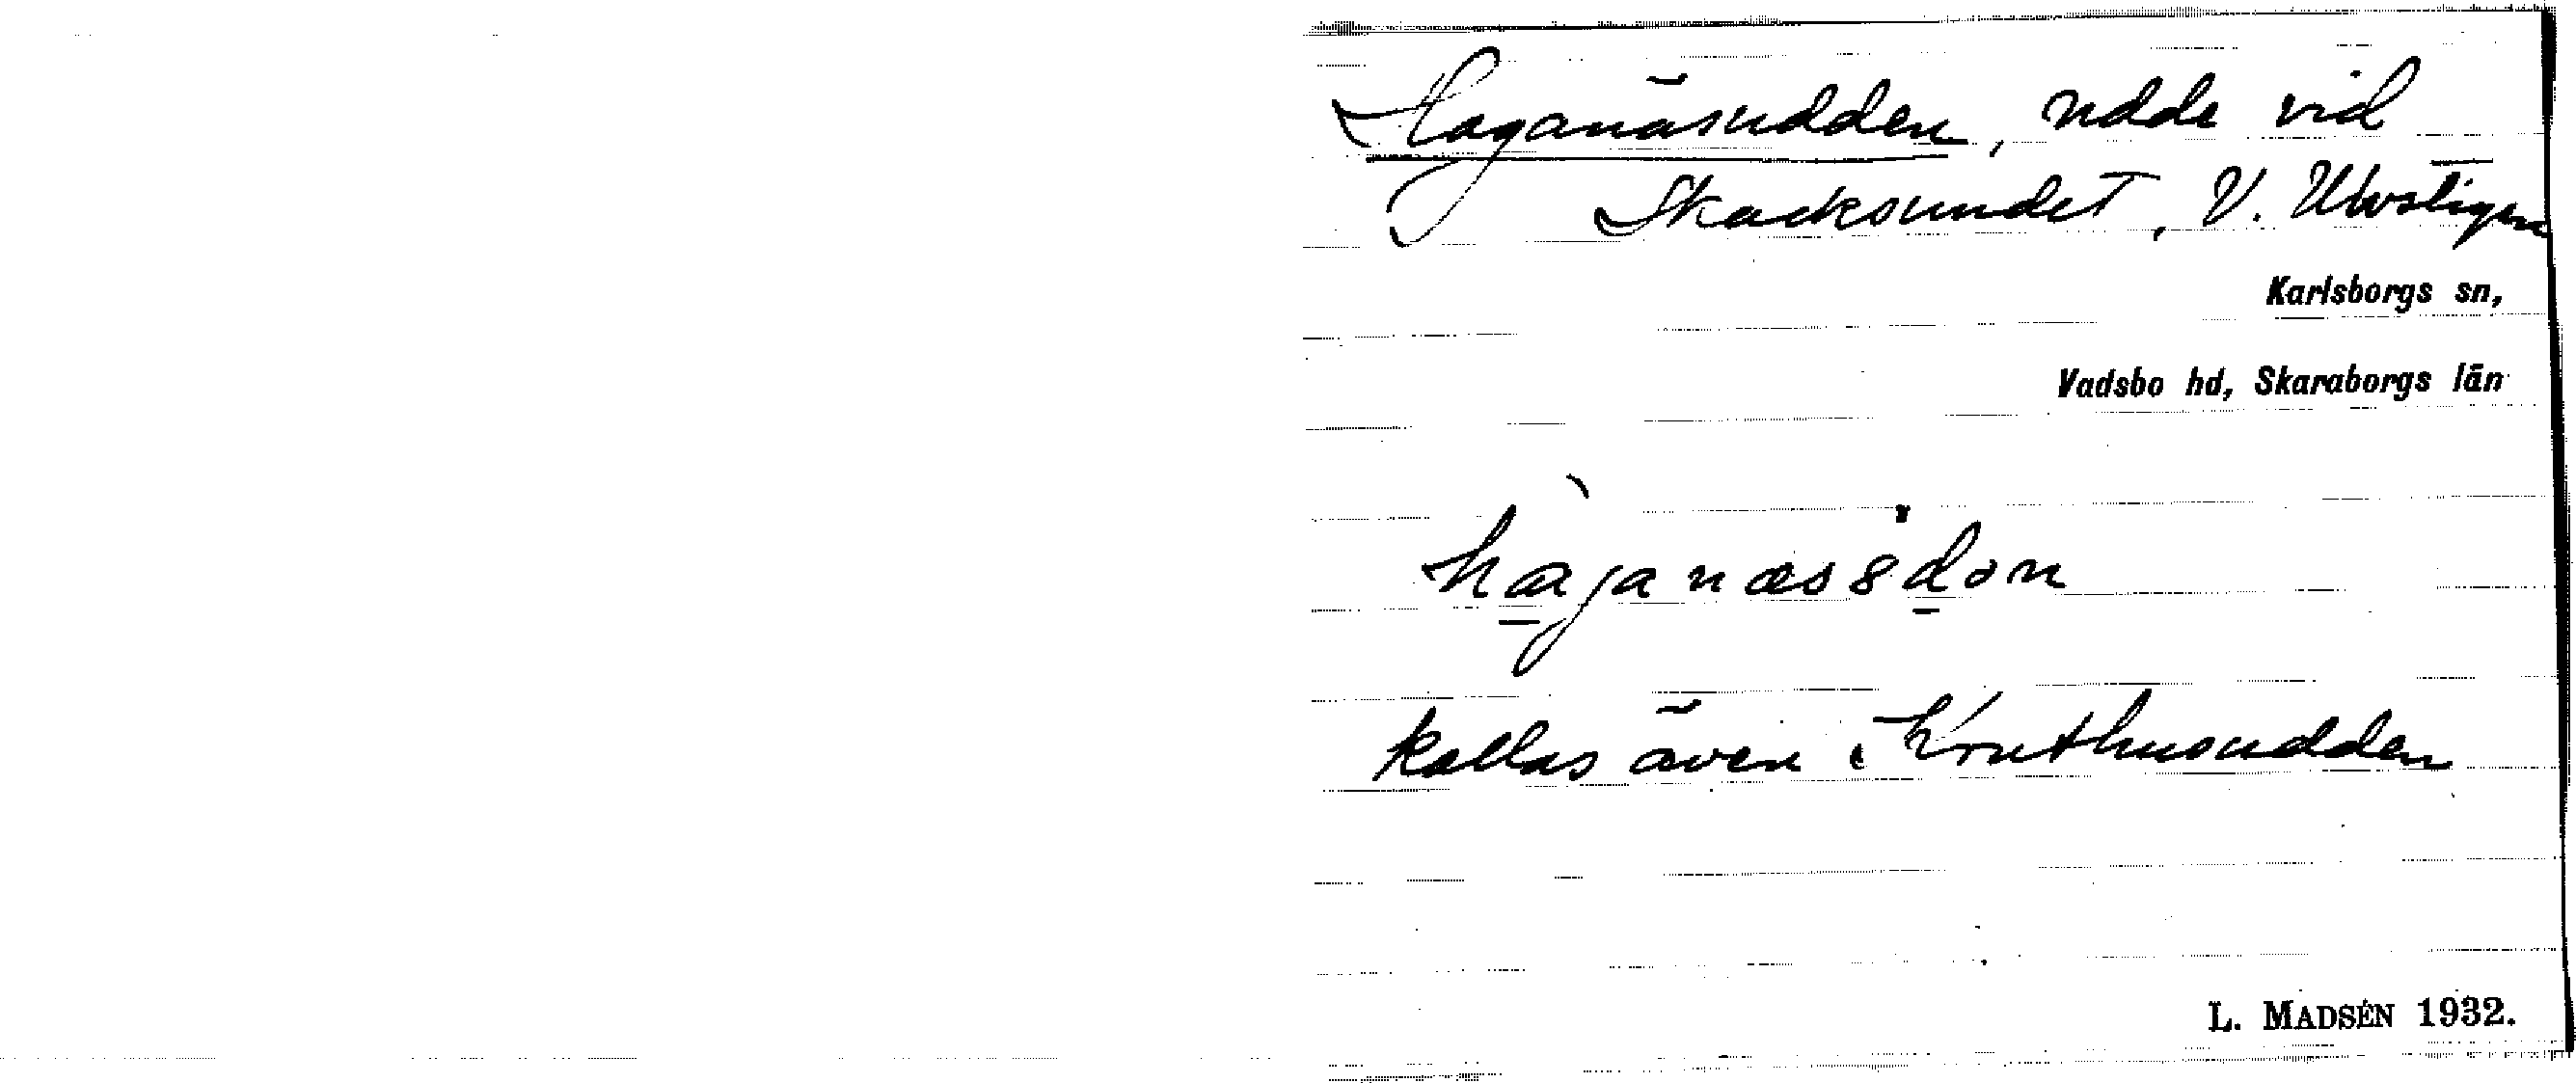 Haganäsudden, udde vid
Skacksundet, V.
Karlsborgs sn,
Vadsbo hd, Skaraborgs län
kallas även Kruthusudden
L. MADSÉN 1932.